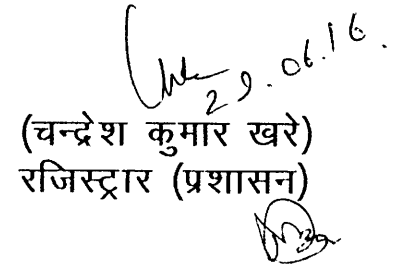 29.06.16.
(चन्द्रेश कुमार खरे)
रजिस्ट्रार (प्रशासन)